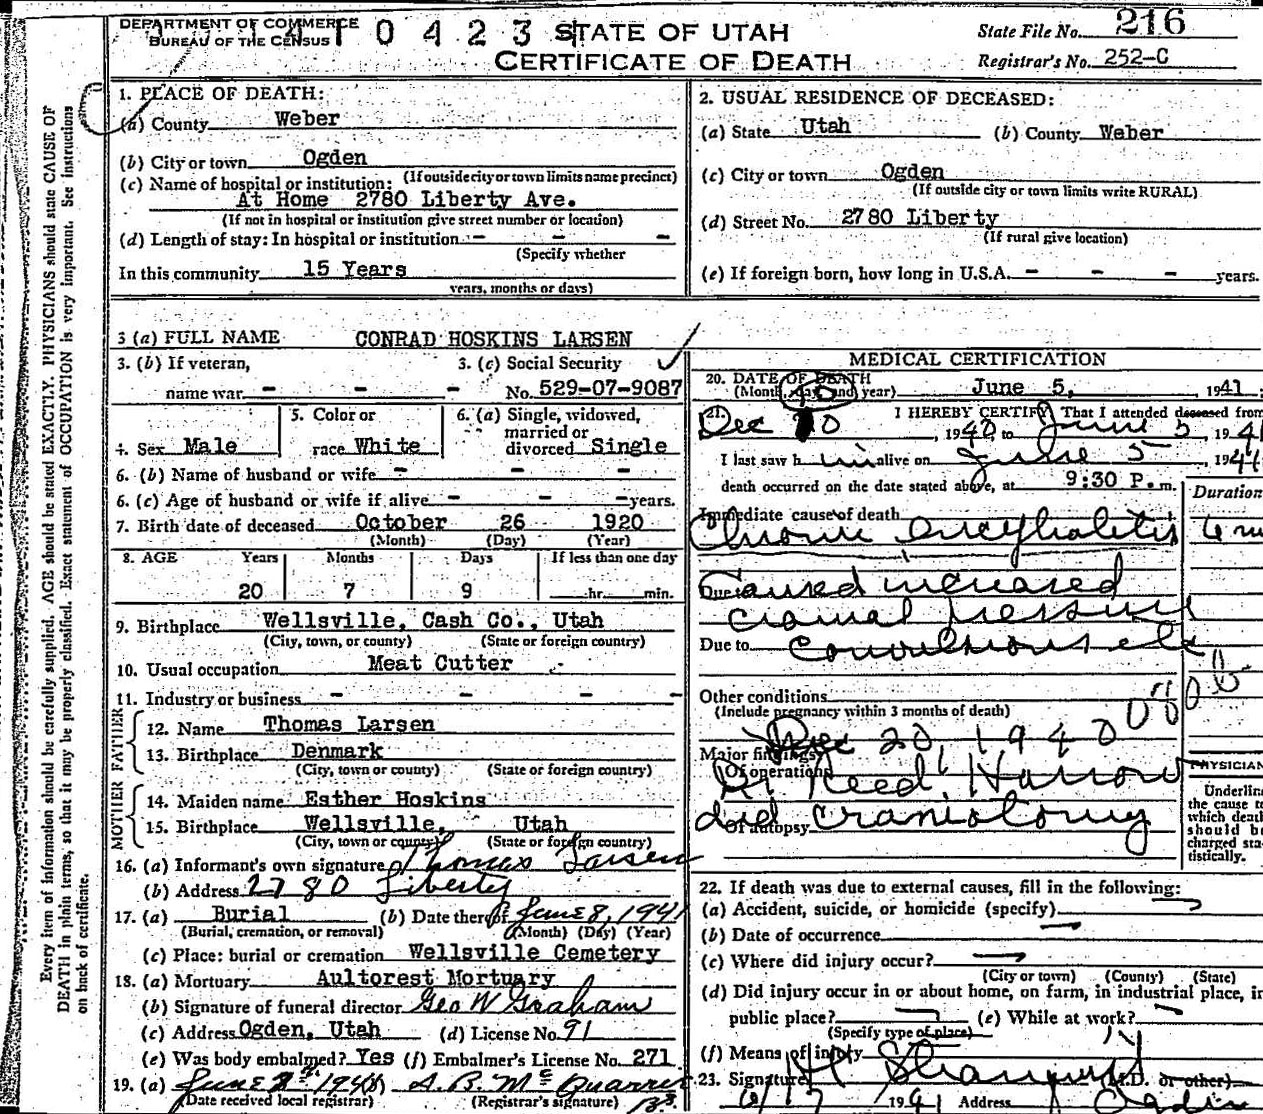 DEPARTMENT OF COMMERCE
BUREAU OF THE CENSUS
0 4 2 3
STATE OF UTAH
CERTIFICATE OF DEATH
State File No. 216
Registrar's No. 252-C
Every item of information should be carefully supplied. AGE should be stated EXACTLY. PHYSICIANS should state CAUSE OF
DEATH in plain terms, so that it may be properly classified. Exact statement of OCCUPATION is very important. See instructions
on back of certificate.
1. PLACE OF DEATH:
(a) County Weber
(b) City or town Ogden
(If outside city or town limits name precinct)
(c) Name of hospital or institution:
At Home 2780 Liberty Ave.
(If not in hospital or institution give street number or location)
(d) Length of stay: In hospital or institution - - -
(Specify whether
In this community 15 Years
years, months or days)
2. USUAL RESIDENCE OF DECEASED:
(a) State Utah (b) County Weber
(c) City or town Ogden
(If outside city or town limits write RURAL)
(d) Street No. 2780 Liberty
(If rural give location)
(e) If foreign born, how long in U.S.A. - - - years.
3 (a) FULL NAME CONRAD HOSKINS LARSEN
3. (b) If veteran, 3. (c) Social Security
name war - - - No. 529-07-9087
4. Sex Male
5. Color or
race White
6. (a) Single, widowed,
married or
divorced Single
6. (b) Name of husband or wife - - -
6. (c) Age of husband or wife if alive - - - years.
7. Birth date of deceased October 26 1920
(Month) (Day) (Year)
8. AGE Years Months Days If less than one day
20 7 9 hr. min.
9. Birthplace Wellsville, Cash Co., Utah
(City, town, or county) (State or foreign country)
10. Usual occupation Meat Cutter
11. Industry or business - - - -
FATHER
12. Name Thomas Larsen
13. Birthplace Denmark
(City, town or county) (State or foreign country)
MOTHER
14. Maiden name Esther Hoskins
15. Birthplace Wellsville, Utah
(City, town or county) (State or foreign country)
16. (a) Informant's own signature Thomas Larsen
(b) Address 2780 Liberty
17. (a) Burial (b) Date thereof June 8, 1941
(Burial, cremation, or removal) (Month) (Day) (Year)
(c) Place: burial or cremation Wellsville Cemetery
18. (a) Mortuary Aultorest Mortuary
(b) Signature of funeral director Geo W Graham
(c) Address Ogden, Utah (d) License No. 91
(e) Was body embalmed? Yes (f) Embalmer's License No. 271
19. (a) June
(Date received local registrar) (Registrar's signature)
MEDICAL CERTIFICATION
20. DATE OF DEATH
(Month, day and year) June 5, 1941
21. I HEREBY CERTIFY That I attended deceased from
Dec , 1940 to June 5 1941
I last saw him alive on June 5, 1941
death occurred on the date stated above, at 9:30 P.m.
Duration
Immediate cause of death
Chronic encephalitis 6
Due to Caused increased
cranial pressure
Due to convulsions etc
Other conditions
(Include pregnancy within 3 months of death)
Dec 20, 1940
Major findings:
Of operations Dr Reed Harrow
Of autopsy did craniotomy
PHYSICIAN
Underline
the cause to
which death
should be
charged sta-
tistically.
22. If death was due to external causes, fill in the following:
(a) Accident, suicide, or homicide (specify)
(b) Date of occurrence
(c) Where did injury occur?
(City or town) (County) (State)
(d) Did injury occur in or about home, on farm, in industrial place, in
public place? (e) While at work?
(Specify type of place)
(f) Means of injury
23. Signature (M.D. or other)
6/17 1941 Address Ogden